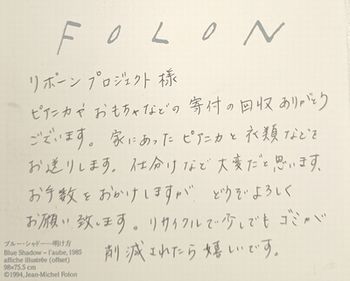 FOLON
リボーンプロジェクト 様
ピアニカや おもちゃなどの 寄付の回収 ありがとう
ございます。 家にあった ピアニカと 衣類などを
お送りします。 仕分けなど大変だと思います。
お手数をおかけしますが どうぞよろしく
お願い致します。 リサイクルで少しでも ゴミが
削減されたら 嬉しいです。
ブルー・シャドー―明け方
Blue Shadow – l'aube, 1985
affiche illustrée (offset)
98×75.5 cm
©1994, Jean-Michel Folon